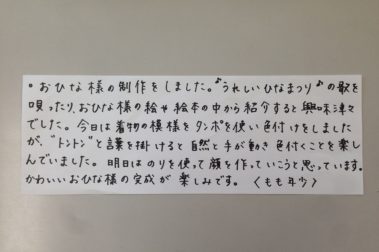 。おひな様の制作をしました。"うれしいひなまつり♪の歌を
唄ったり、おひな様の絵や絵本の中から紹介すると興味津々
でした。今日は着物の模様をタンポを使い色付けをしました
が、"トントン"と言葉を掛けると自然と手が動き色付くことを楽し
んでいました。明日はのりを使って顔を作っていこうと思っています。
かわいいおひな様の完成が楽しみです。〈もも年少〉